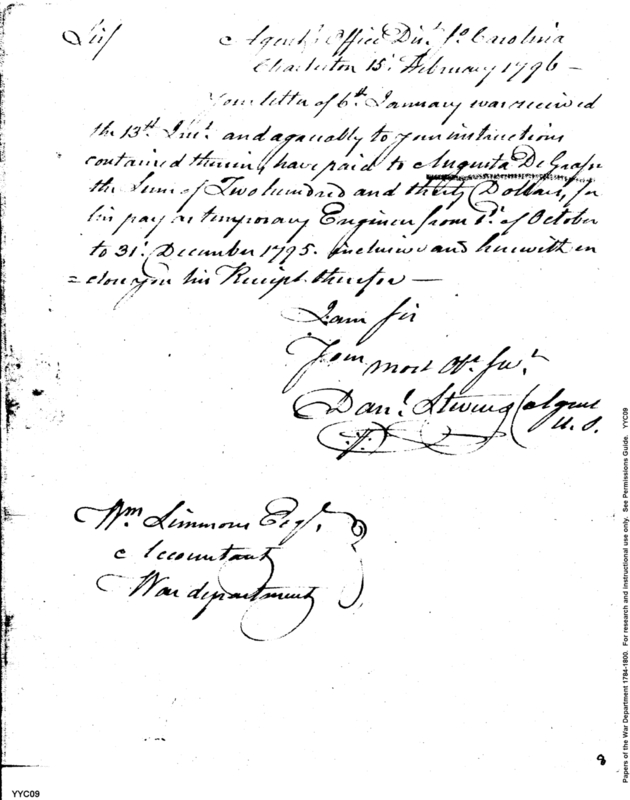 Sir
Agents Office Dist. So. Carolina
Charleston 15t. February 1796 —
Your letter of 6th. January was received
the 13th. Inst. and agreeably to your instructions
contained therein, have paid to Augusta De Grasse
the Sum of Two hundred and thirty Dollars, for
his pay as temporary Engineer from 1st. of October
to 31t. December 1795. inclusive and herewith en
=close you his Receipt therefor —
I am Sir
Your most Ob. Sert.
Danl. Stevens Agent
U. S.
Wm. Simmons Esqr.
Accountant
War department
8
YYC09
Papers of the War Department 1784-1800. For research and instructional use only. See Permissions Guide. YYC09